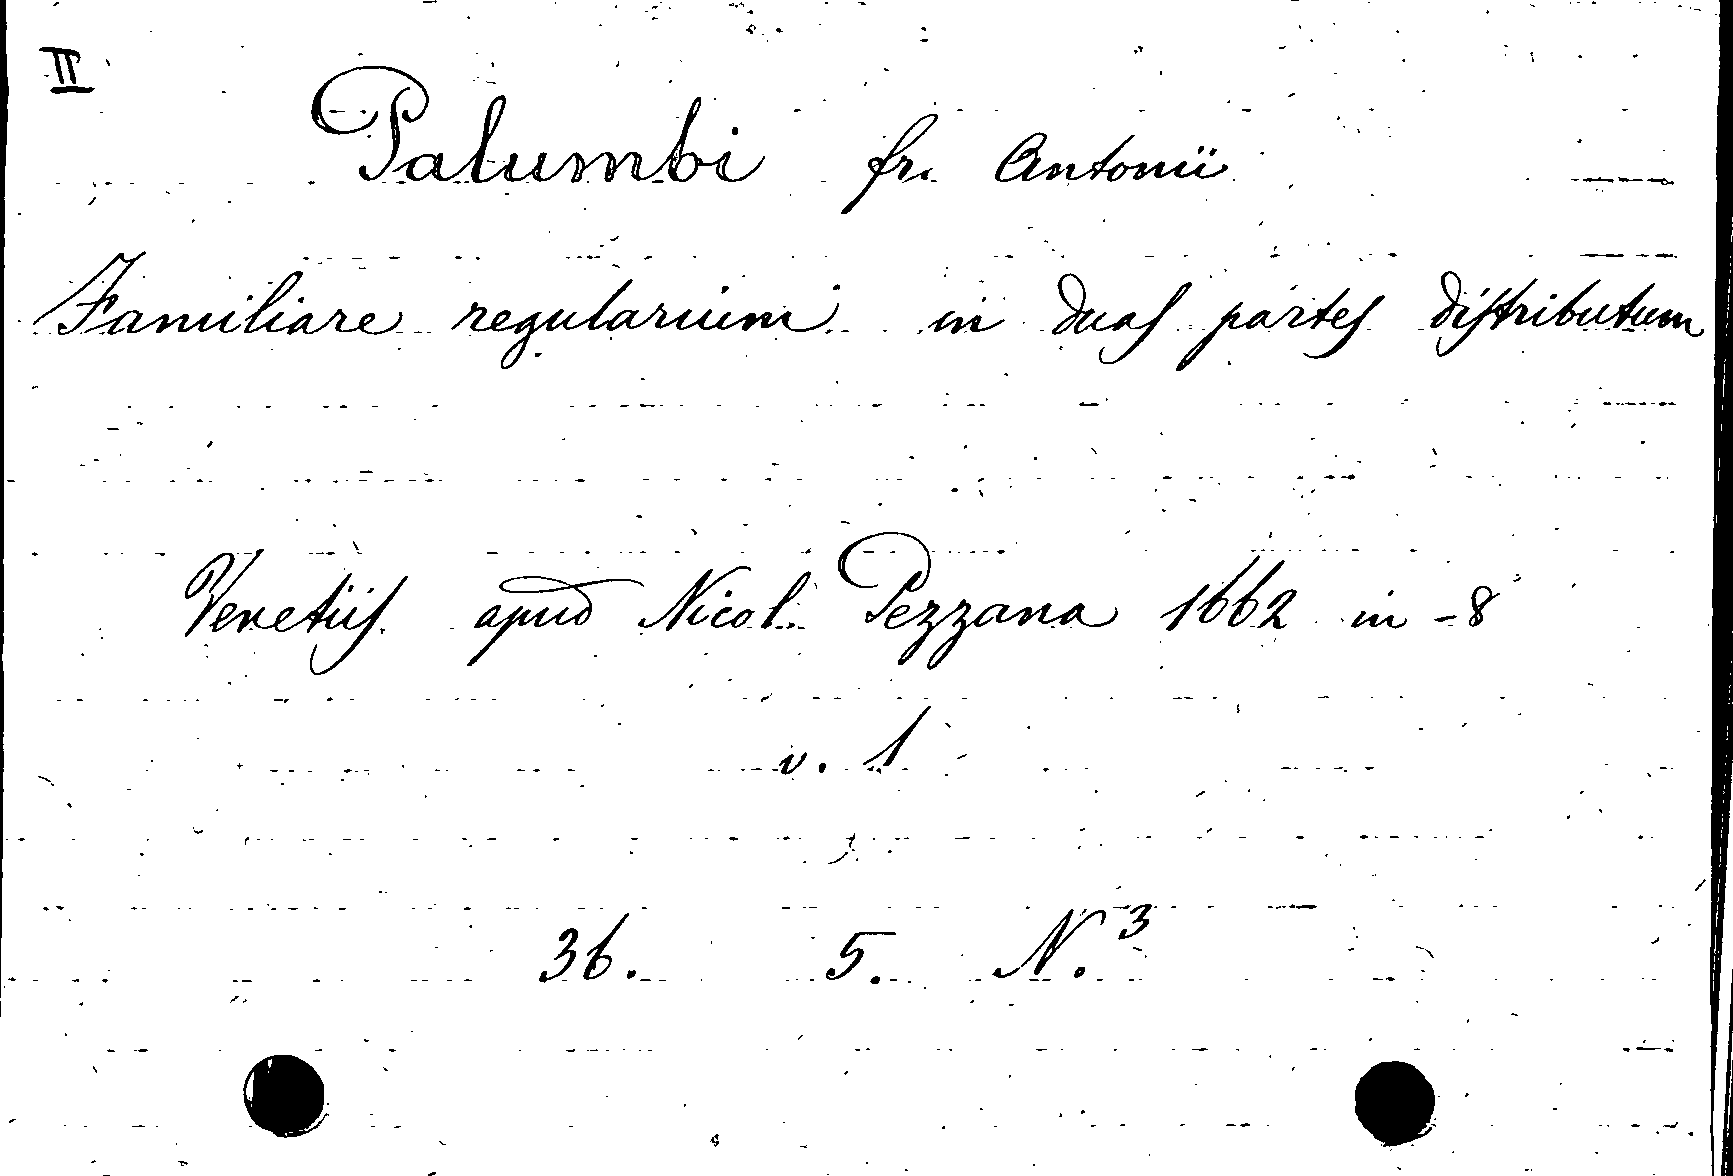 II
Palumbi fr. Antonii
Familiare regularium in duas partes distributum
Venetiis apud Nicol. Pezzana 1662 in-8
v. 1
36. 5. N.3